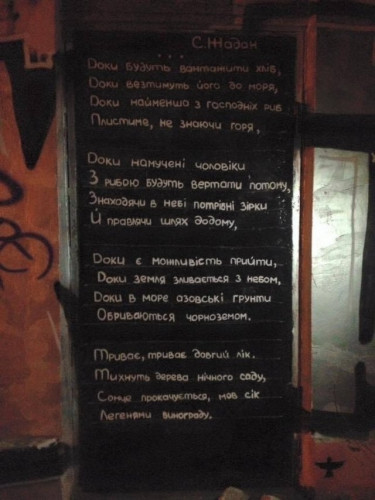 С. Жадан
...
Доки будуть вантажити хліб,
Доки везтимуть його до моря,
Доки найменша з господніх риб
Плистиме, не знаючи горя,
Доки намучені чоловіки
З рибою будуть вертати потому,
Знаходячи в небі потрібні зірки
Й правлячи шлях додому,
Доки є можливість прийти,
Доки земля зливається з небом,
Доки в море азовські грунти
Обриваються чорноземом.
Триває, триває довгий лік.
Тихнуть дерева нічного саду,
Сонце прокачується, мов сік
Легенями винограду.